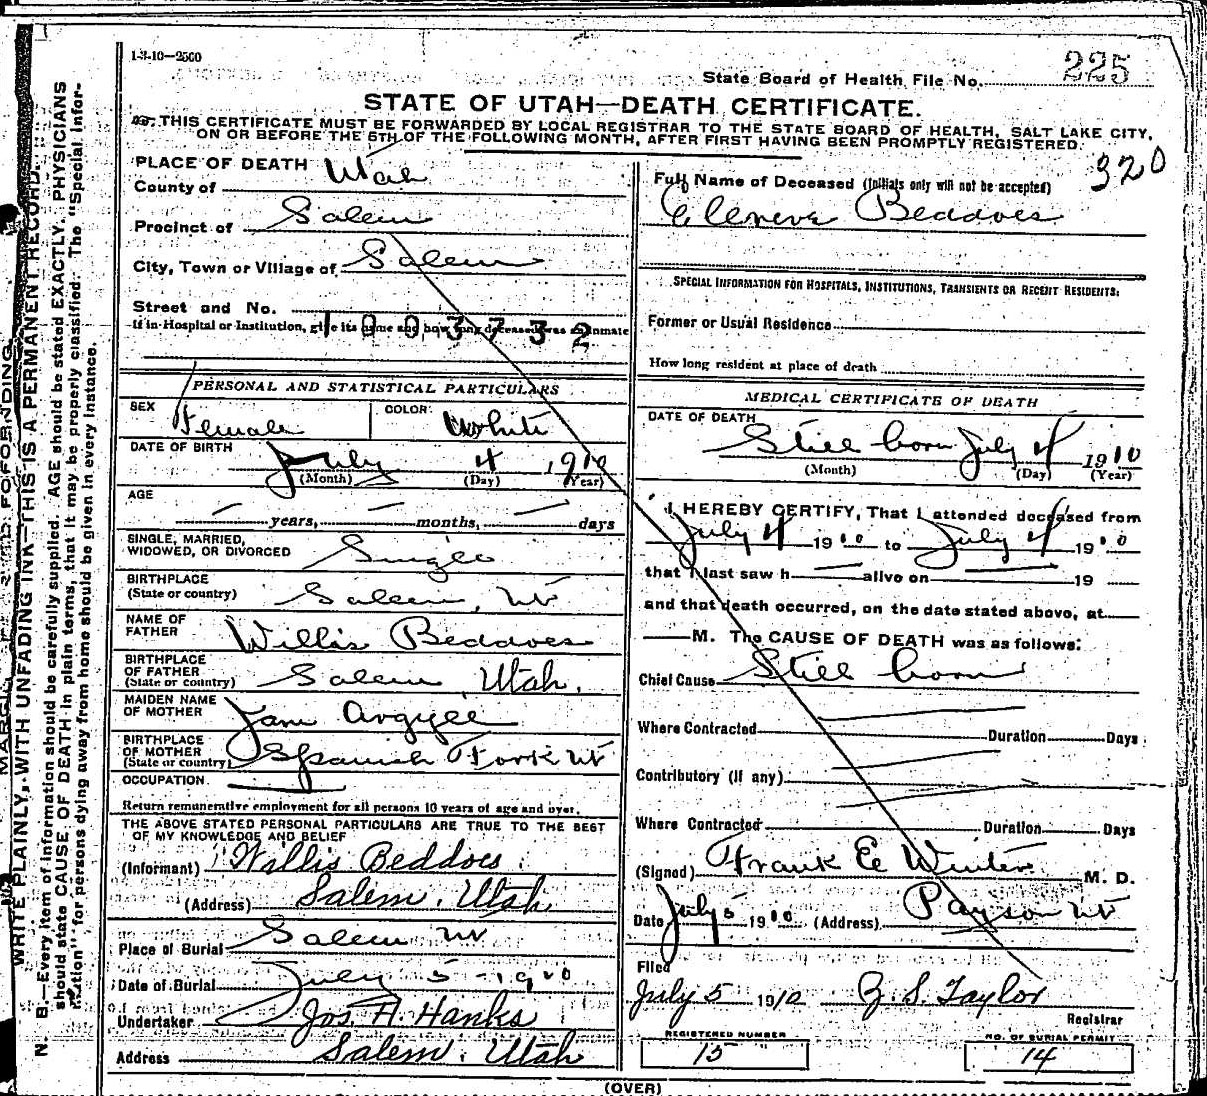 1-3-10—2500
State Board of Health File No. 225
STATE OF UTAH—DEATH CERTIFICATE.
THIS CERTIFICATE MUST BE FORWARDED BY LOCAL REGISTRAR TO THE STATE BOARD OF HEALTH, SALT LAKE CITY,
ON OR BEFORE THE 5TH OF THE FOLLOWING MONTH, AFTER FIRST HAVING BEEN PROMPTLY REGISTERED.
320
PLACE OF DEATH
County of Utah
Precinct of Salem
City, Town or Village of Salem
Street and No.
If in Hospital or Institution, give its name and how long deceased was an inmate
1003732
PERSONAL AND STATISTICAL PARTICULARS
SEX Female
COLOR: White
DATE OF BIRTH
July 4 1910
(Month) (Day) (Year)
AGE
— years, — months, — days
SINGLE, MARRIED,
WIDOWED, OR DIVORCED Single
BIRTHPLACE
(State or country) Salem, Ut
NAME OF
FATHER Willis Beddoes
BIRTHPLACE
OF FATHER
(State or country) Salem Utah.
MAIDEN NAME
OF MOTHER Jane Argyle
BIRTHPLACE
OF MOTHER
(State or country) Spanish Fork Ut
OCCUPATION.
Return remunerative employment for all persons 10 years of age and over.
THE ABOVE STATED PERSONAL PARTICULARS ARE TRUE TO THE BEST
OF MY KNOWLEDGE AND BELIEF
(Informant) Willis Beddoes
(Address) Salem, Utah
Place of Burial Salem Ut
Date of Burial July 5 - 1910
Undertaker Jos. H. Hanks
Address Salem, Utah
Full Name of Deceased (Initials only will not be accepted)
Beddoes
SPECIAL INFORMATION FOR HOSPITALS, INSTITUTIONS, TRANSIENTS OR RECENT RESIDENTS:
Former or Usual Residence
How long resident at place of death
MEDICAL CERTIFICATE OF DEATH
DATE OF DEATH
Still born July 4 1910
(Month) (Day) (Year)
I HEREBY CERTIFY, That I attended deceased from
July 4 1910 to July 4 1910
that I last saw h — alive on — 19
and that death occurred, on the date stated above, at
— M. The CAUSE OF DEATH was as follows:
Chief Cause Still born
Where Contracted Duration Days
Contributory (if any)
Where Contracted Duration Days
(Signed) Frank E Winters M. D.
Date July 5 1910 (Address) Payson Ut
Filed
July 5 1910 Z. S. Taylor
Registrar
REGISTERED NUMBER
15
NO. OF BURIAL PERMIT
14
(OVER)
WRITE PLAINLY, WITH UNFADING INK—THIS IS A PERMANENT RECORD.
N. B.—Every item of information should be carefully supplied. AGE should be stated EXACTLY. PHYSICIANS
should state CAUSE OF DEATH in plain terms, that it may be properly classified. The "Special Infor-
mation" for persons dying away from home should be given in every instance.